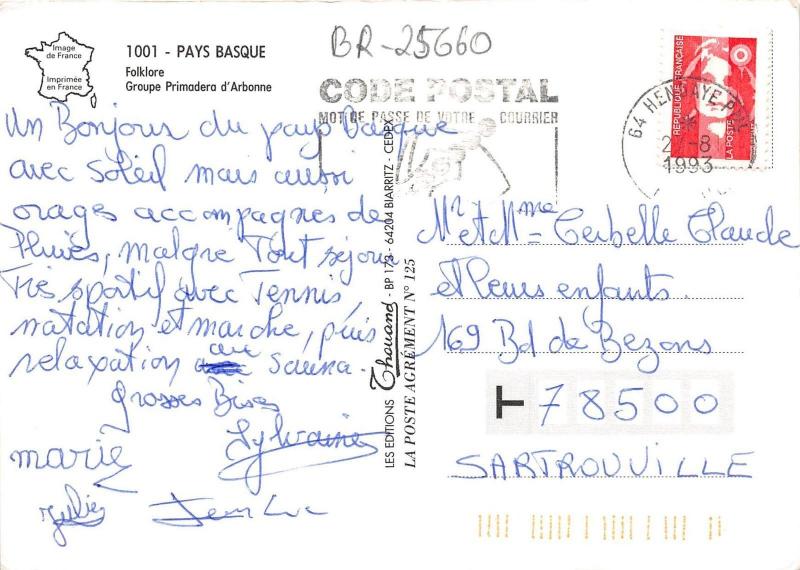 BR-25660
Image
de France
Imprimée
en France
1001 - PAYS BASQUE
Folklore
Groupe Primadera d'Arbonne
CODE POSTAL
MOT DE PASSE DE VOTRE COURRIER
64 HENDAYE
2 -8
1993
RÉPUBLIQUE FRANÇAISE
LA POSTE
Un Bonjour du pays basque
avec soleil mais aussi
orages accompagnes de
Pluies, malgre Tout séjour
Très sportif avec Tennis,
natation et marche, puis
relaxation au sauna.
Grosses Bises
Sylvaine
marie
Julie Jean Luc
LES EDITIONS Thouand - BP 173 - 64204 BIARRITZ - CEDEX
LA POSTE AGRÉMENT N° 125
Mr et Mme Cerbelle Claude
et leurs enfants.
169 Bd de Bezons
T 78500
SARTROUVILLE